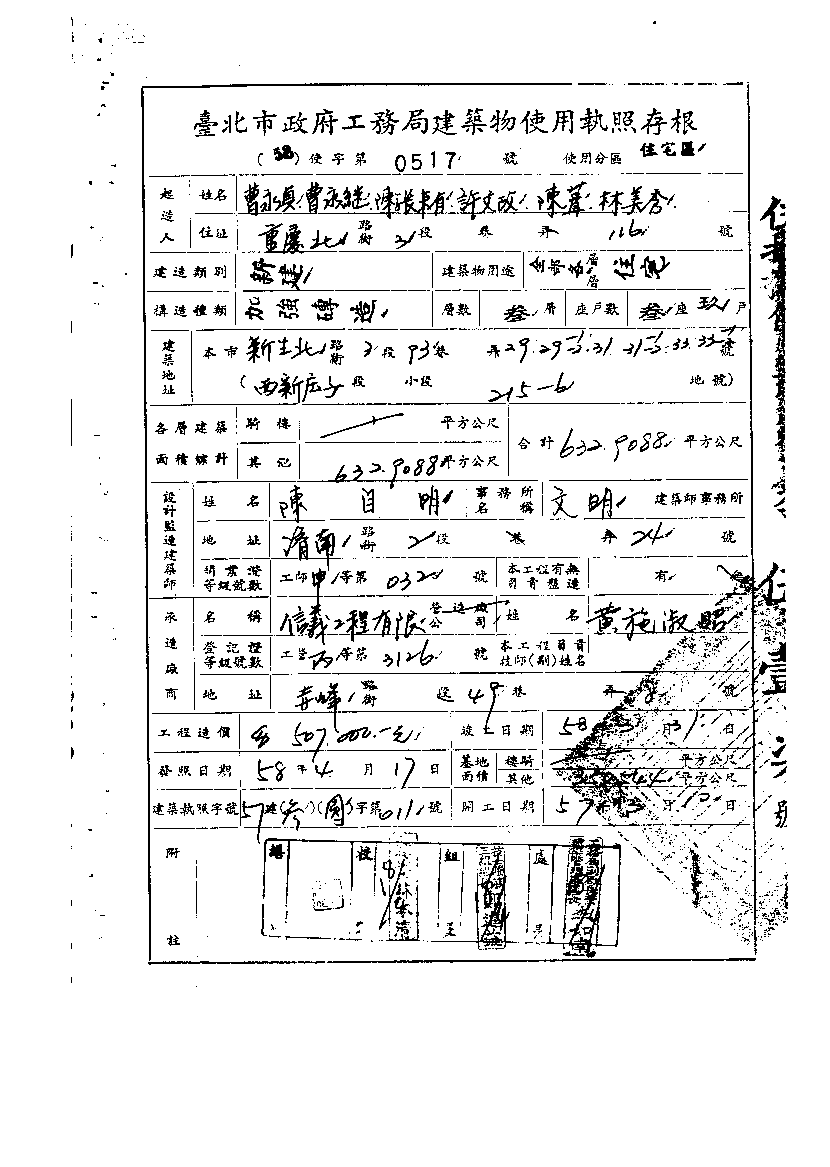 臺北市政府工務局建築物使用執照存根
(58) 使字第 0517 號 使用分區 住宅區
起造人 姓名 曹永貞 曹永繼 陳張 許文政 陳 林美
住址 重慶北 路街 3 段 巷 弄 116 號
建造類別 新建 建築物用途 層 住宅
構造種類 加強磚造 層數 叁 層 座戶數 叁 座 玖 戶
建築地址 本市 新生北 路街 3 段 93 巷 弄 29. 29-1. 31. 31-1. 33. 33-1 號
(西新庄子 段 小段 215-6 地號)
各層建築面積總計 騎樓 平方公尺 合計 632.9088 平方公尺
其他 632.9088 平方公尺
設計監造建築師 姓名 陳 明 事務所名稱 文明 建築師事務所
地址 濟南 路街 2 段 巷 弄 24 號
開業證等級號數 工師 甲 等第 032 號 本工程有無負責監造 有
承造廠商 名稱 信義工程有限 營造廠公司 姓名 黃施淑昭
登記證等級號數 工營 丙 等第 3126 號 本工程負責技師(副)姓名
地址 赤峰 路街 段 49 巷 弄 8 號
工程造價 507,000.-元 竣工日期 58 年 3 月 31 日
發照日期 58 年 4 月 17 日 基地面積 樓騎 平方公尺
其他 平方公尺
建築執照字號 57 建 (叁)(圓) 字第 011 號 開工日期 57 年 3 月 13 日
附註